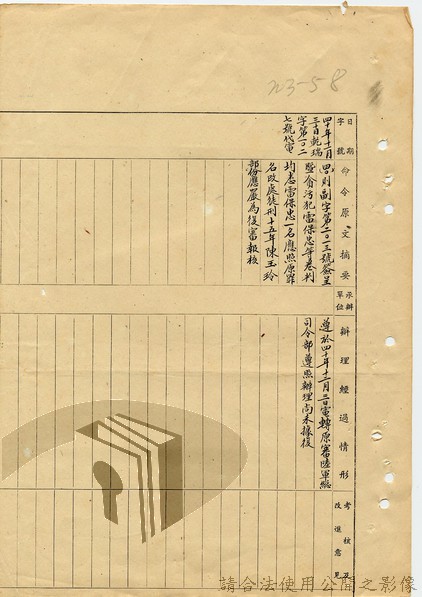 N3-58
日期
字號
命令原文摘要
承辦
單位
辦理經過情形
考核及
改進意見
四十年十一月
三十日乾瑞
字第一〇二
七號代電
㈣則副字第二〇一三號簽呈
暨貪污犯雷保忠等卷判
均悉雷保忠一名應照原罪
名改處徒刑十五年陳玉玲
部份應嚴為復審報核
遵於四十年十二月三日電轉原審陸軍總
司令部遵照辦理尚未據復
請合法使用公開之影像